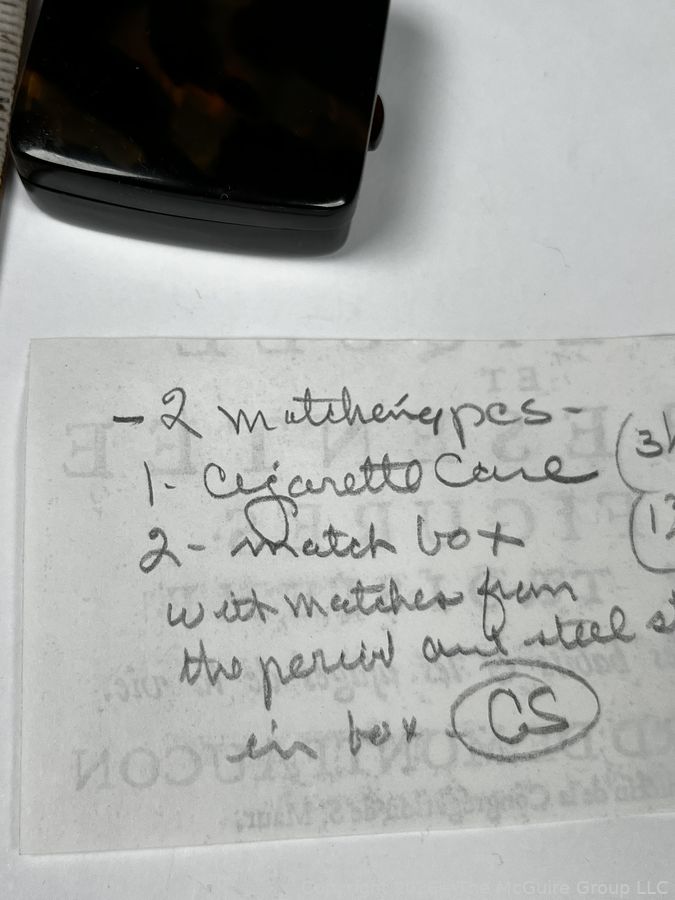 - 2 matcheing pcs -
1 - Cigarette Case (3
2 - match box (1
with matches from
the period and steel st
in box - CS
ET
FIGURES
MONTFAUCON
de la Congrégation de S. Maur.
The McGuire Group LLC